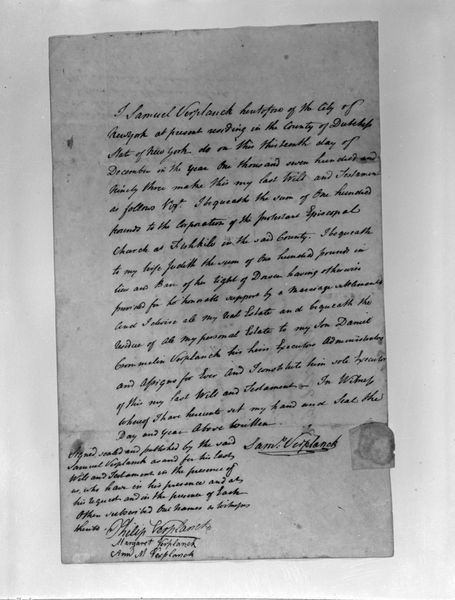 I Samuel Verplanck heretofore of the City of
New york at present residing in the County of Dutchess
State of New York do on this thirteenth day of
December in the Year One thousand seven hundred and
Ninety three make this my last Will and Testament
as follows Viz.t I bequeath the sum of One hundred
Pounds to the Corporation of the Protestant Episcopal
Church at Fishkills in the said County. I bequeath
to my wife Judith the sum of One hundred pounds in
lieu and Barr of her right of Dower having otherwise
provided for her honorable support by a Marriage Settlement
And I devise all my real Estate and bequeath the
residue of all my personal Estate to my Son Daniel
Crommelin Verplanck his heirs Executors Administrators
and Assigns for Ever And I constitute him sole Executor
of this my last Will and Testament — In Witness
whereof I have hereunto set my hand and Seal the
Day and Year Above written.
Saml. Verplanck
Signed sealed and published by the said
Samuel Verplanck as and for his last
Will and Testament in the presence of
us, who have in his presence and at
his request and in the presence of Each
Other subscribed Our Names as Witnesses
thereto
Philip Verplanck
Margaret Verplanck
Ann M Verplanck